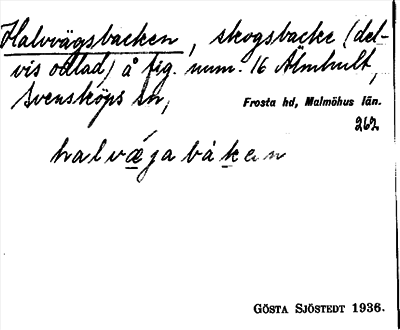 Halvvägsbacken, skogsbacke (del-
vis odlad) å fig. num. 16 Älmhult,
Svensköps sn,
Frosta hd, Malmöhus län.
262
halvǽjabåkan
GÖSTA SJÖSTEDT 1936.